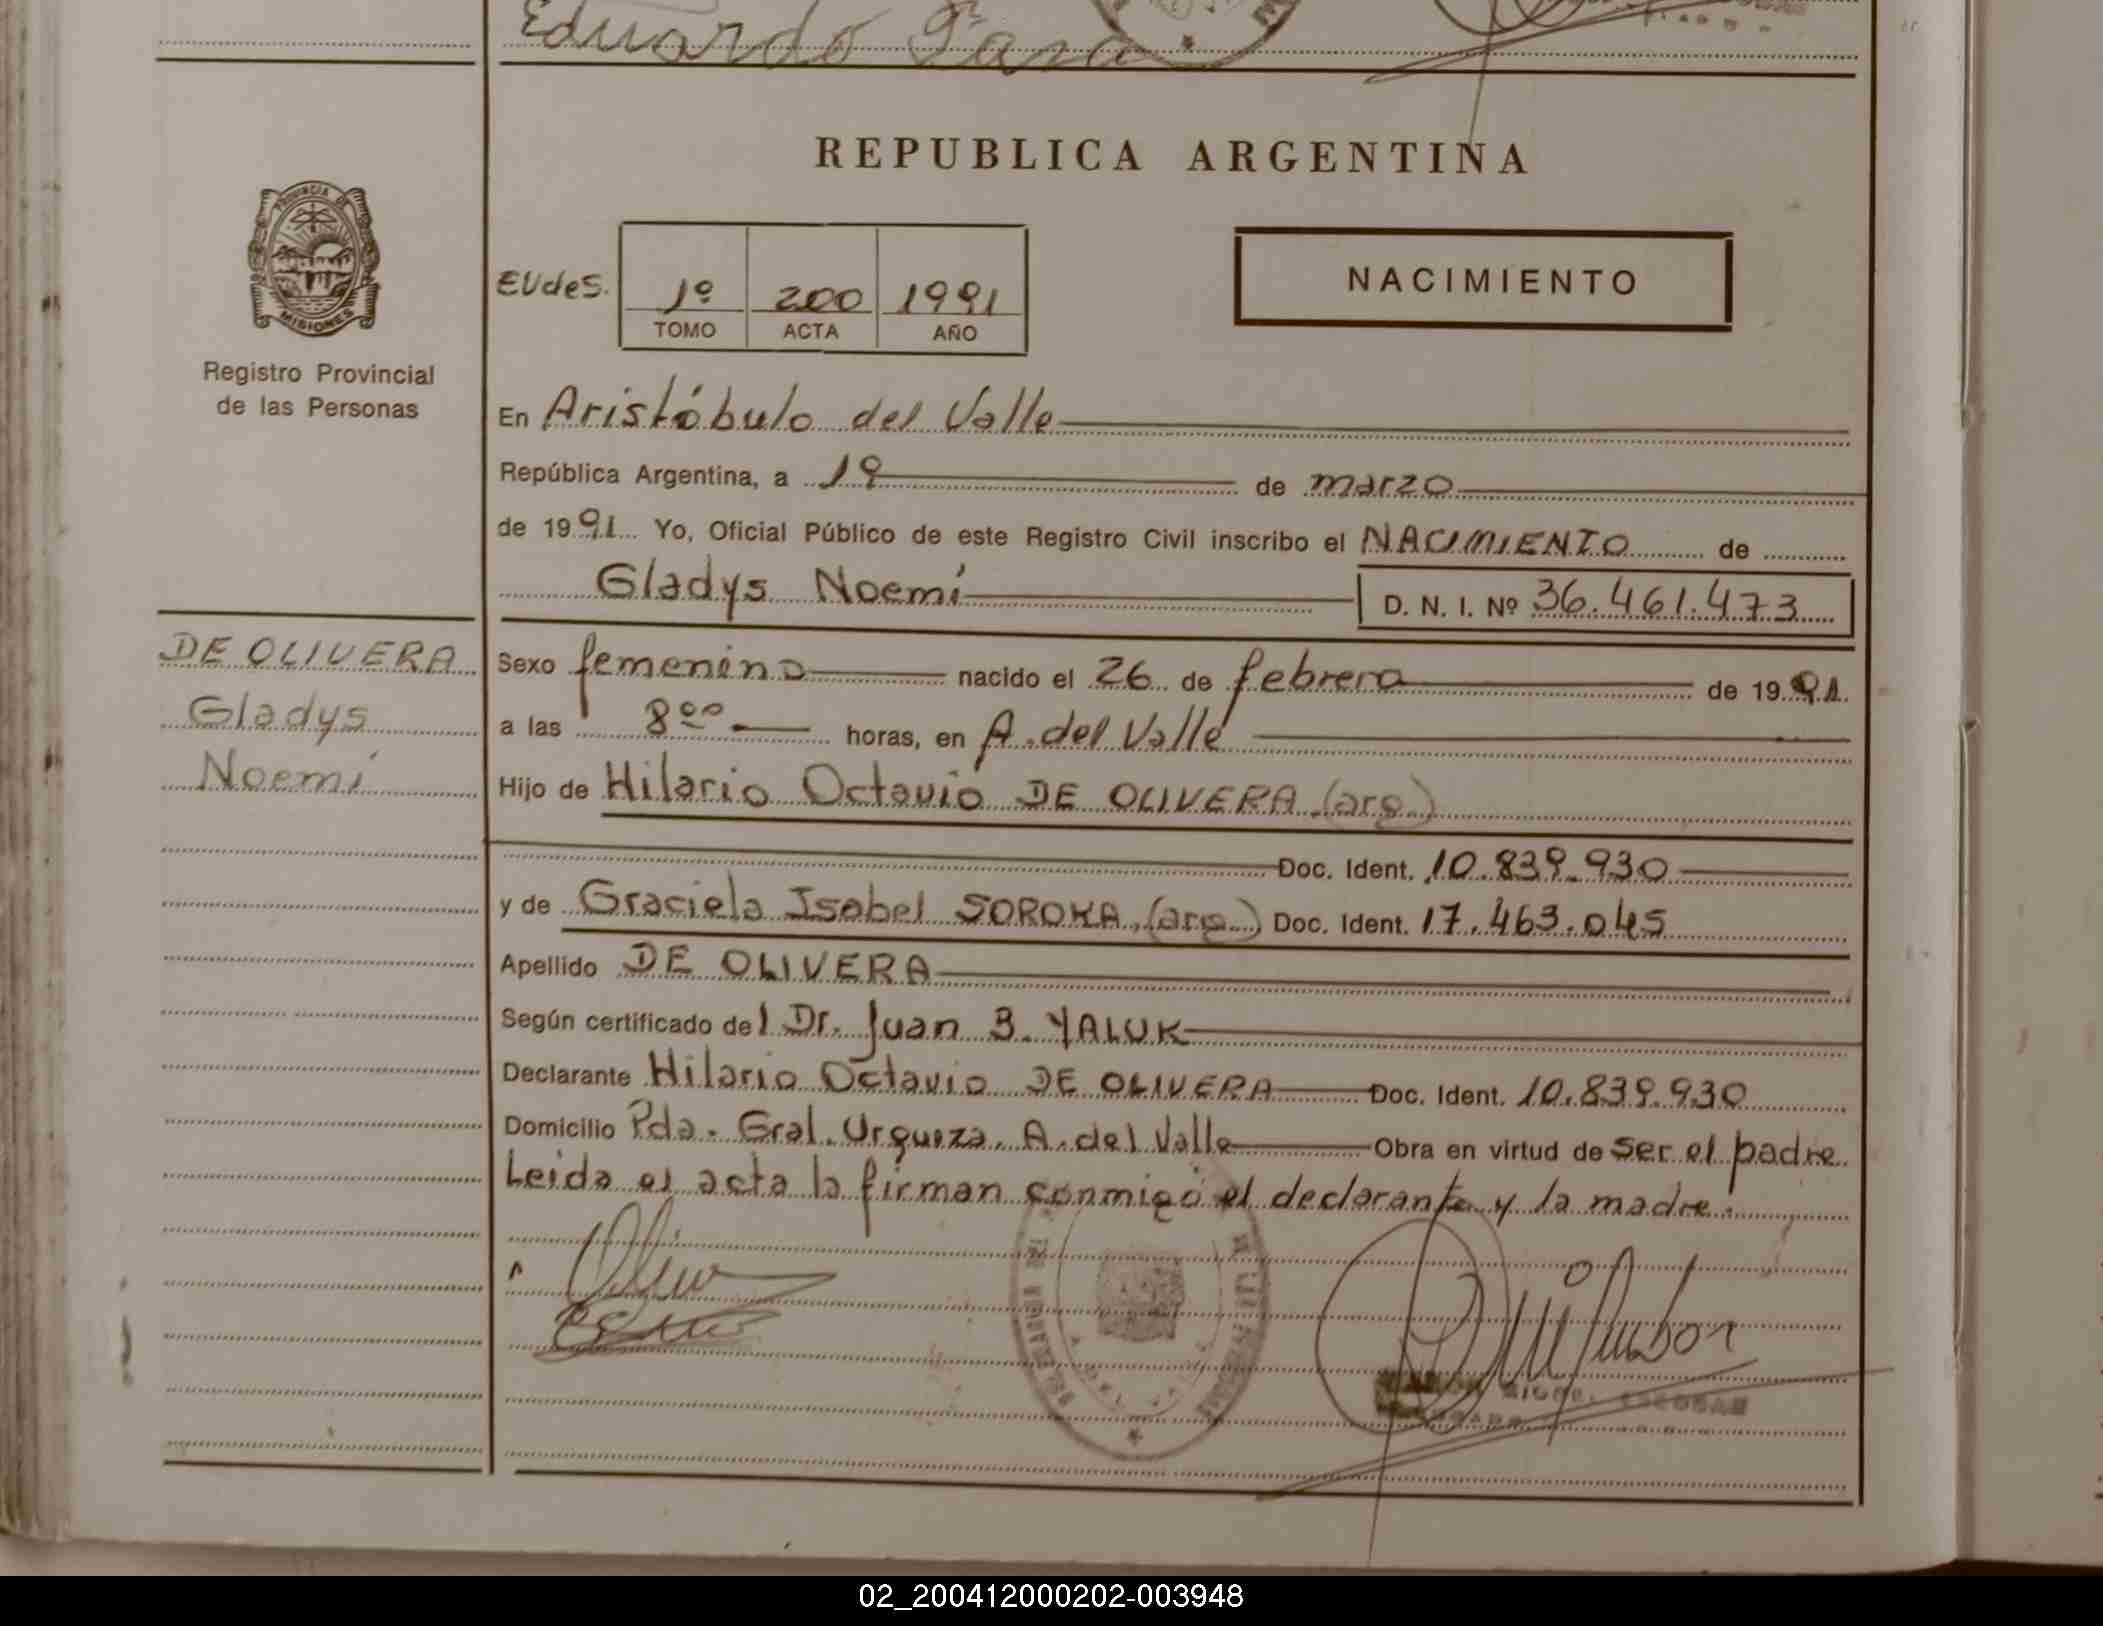 Eduardo
REPUBLICA ARGENTINA
PROVINCIA DE
MISIONES
Registro Provincial
de las Personas
EUdes.
1º 200 1991
TOMO ACTA AÑO
NACIMIENTO
En Aristóbulo del Valle
República Argentina, a 19 de marzo
de 1991 Yo, Oficial Público de este Registro Civil inscribo el NACIMIENTO de
Gladys Noemí D. N. I. Nº 36.461.473
DE OLIVERA
Gladys
Noemí
Sexo femenino nacido el 26 de febrero de 1991
a las 8⁰⁰ horas, en A. del Valle
Hijo de Hilario Octavio DE OLIVERA (arg.)
Doc. Ident. 10.839.930
y de Graciela Isabel SOROKA (arg.) Doc. Ident. 17.463.045
Apellido DE OLIVERA
Según certificado del Dr. Juan B. YALUK
Declarante Hilario Octavio DE OLIVERA Doc. Ident. 10.839.930
Domicilio Pda. Gral. Urquiza. A. del Valle Obra en virtud de ser el padre
Leida el acta la firman conmigo el declarante y la madre.
ESCOBAR
02_200412000202-003948